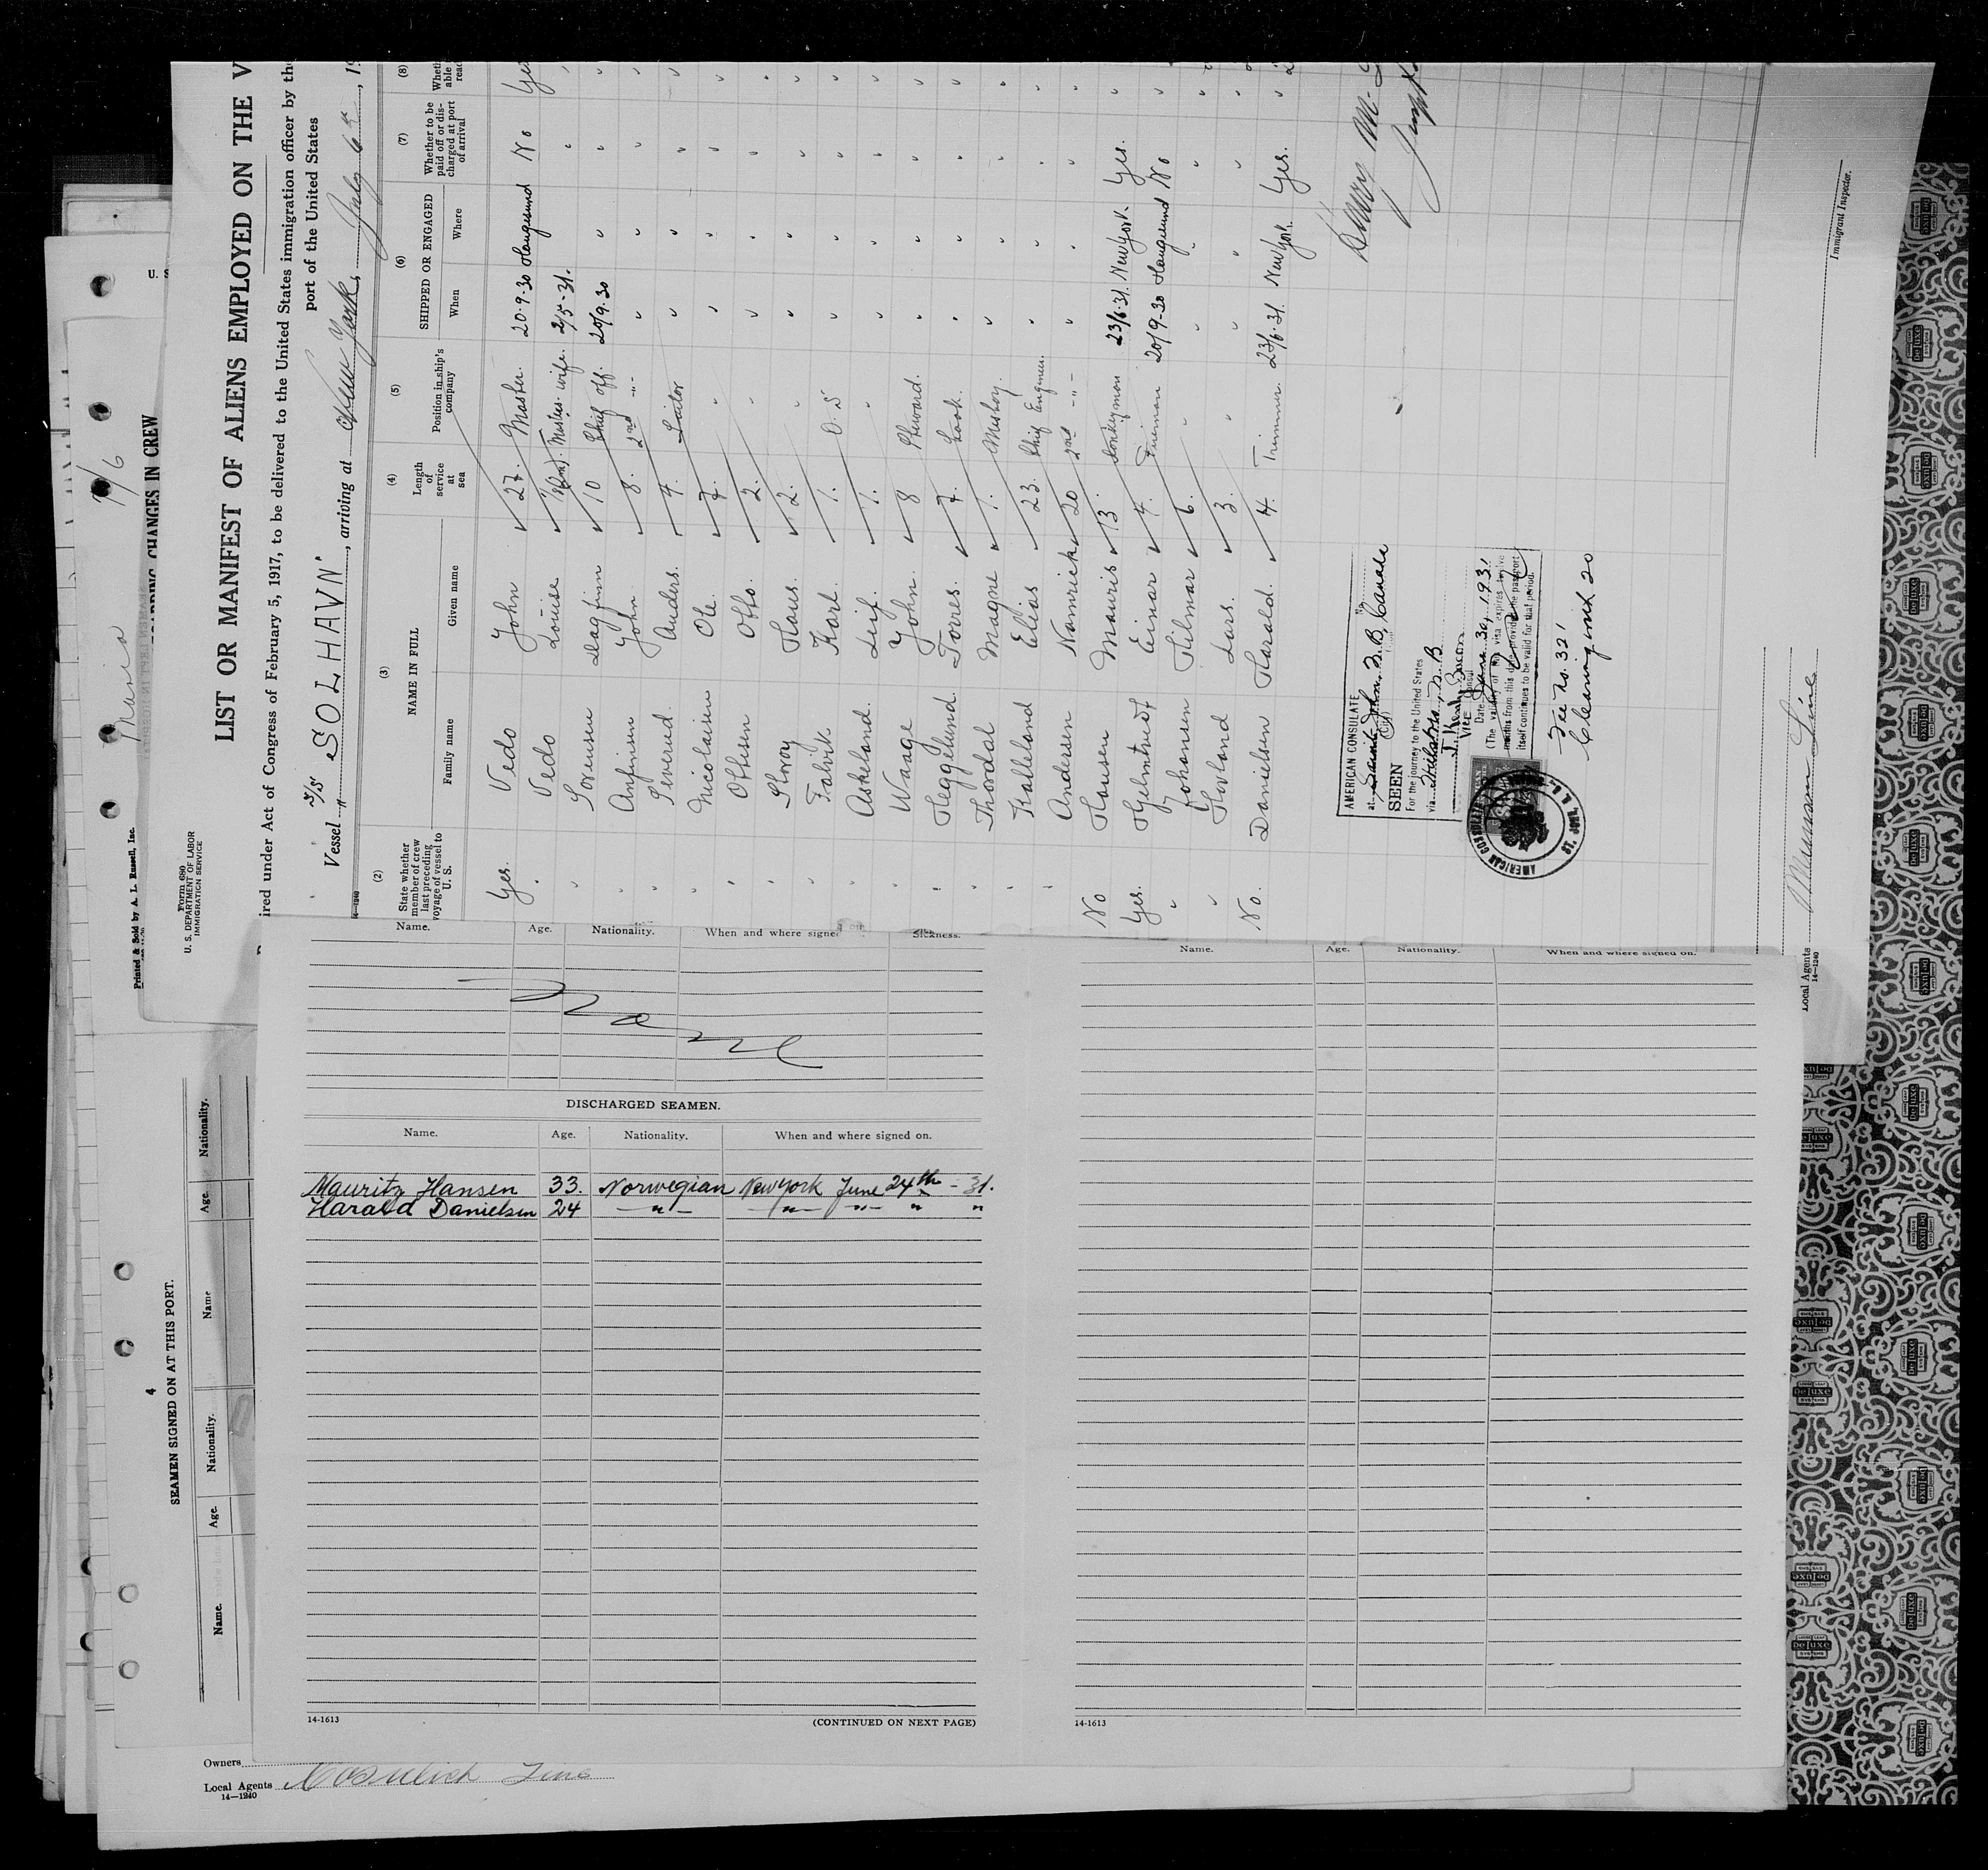 LIST OR MANIFEST OF ALIENS EMPLOYED ON THE V
ired under Act of Congress of February 5, 1917, to be delivered to the United States immigration officer by the
port of the United States
Vessel S/S "SOLHAVN", arriving at New York, July 6th, 19
(2) (3) (4) (5) (6) (7) (8)
State whether member of crew last preceding voyage of vessel to U. S.
NAME IN FULL
Family name Given name
Length of service at sea
Position in ship's company
SHIPPED OR ENGAGED
When Where
Whether to be paid off or discharged at port of arrival
Yes. Vedo John 27. Master. 20.9.30 Haugesund No Yes
" Vedo Louise Masters wife. 2/5-31. " "
" Sorensen Dagfinn 10 Chief off. 20/9.30 " " "
" Anfinsen John 8. 2nd -"- " " " "
" Severud. Anders. 4. " " " "
" Nicolaisen Ole. 7. " " " " "
" Ottesen Otto. 2. " " " " "
" Klaus. 2. " " " " "
" Falvik Karl 1. O. S " " " "
" Askeland. Leif. 1. " " " " "
" Waage John. 8 Steward. " " " "
" Heggelund. Torres. 7. Cook. " " " "
" Thordal Magne 1. Messboy. " " " "
" Kalleland Elias 23. Chief Engineer. " " " "
Andersen 20 2nd -"- " " " "
No Hansen Mauris 13. Donkeyman 23/6.31. New York. Yes. "
Yes. Einar 4. Fireman 20/9-30 Haugesund No "
" Johansen Hilmar 6. " " " " "
" Hovland Lars. 3. " " " " "
No. Danielsen Harald. 4. Trimmer. 23/6.31. New York. Yes. "
AMERICAN CONSULATE
at Saint John, N.B, Canada
(City)
SEEN
For the journey to the United States
VICE Consul
Date June 30, 1931
(The validity of this visa expires twelve
months from this date provided the passport
itself continues to be valid for that period.
Fee No. 32'
AMERICAN CONSULATE
ST. JOHN, N. B.
Immigrant Inspector.
Local Agents
14—1240
Line
Form 680
U. S. DEPARTMENT OF LABOR
IMMIGRATION SERVICE
Printed & Sold by A. L. Russell, Inc.
CHANGES IN CREW
Maria
U. S
Name. Age. Nationality. When and where signe Sickness.
None
DISCHARGED SEAMEN.
Name. Age. Nationality. When and where signed on.
Mauritz Hansen 33. Norwegian New York June 24th - 31.
Harald Danielsen 24 -"- -"- -"- " "
14-1613
(CONTINUED ON NEXT PAGE)
Name. Age. Nationality. When and where signed on.
14-1613
4
SEAMEN SIGNED ON AT THIS PORT.
Name. Age. Nationality. Name Age. Nationality.
Owners
Local Agents Cosulich Line
14—1240